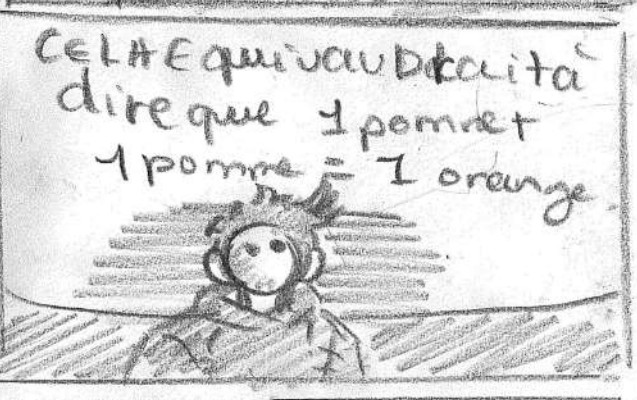 CELA EquivauDRaità
dire que 1 pomme +
1 pomme = 1 orange.